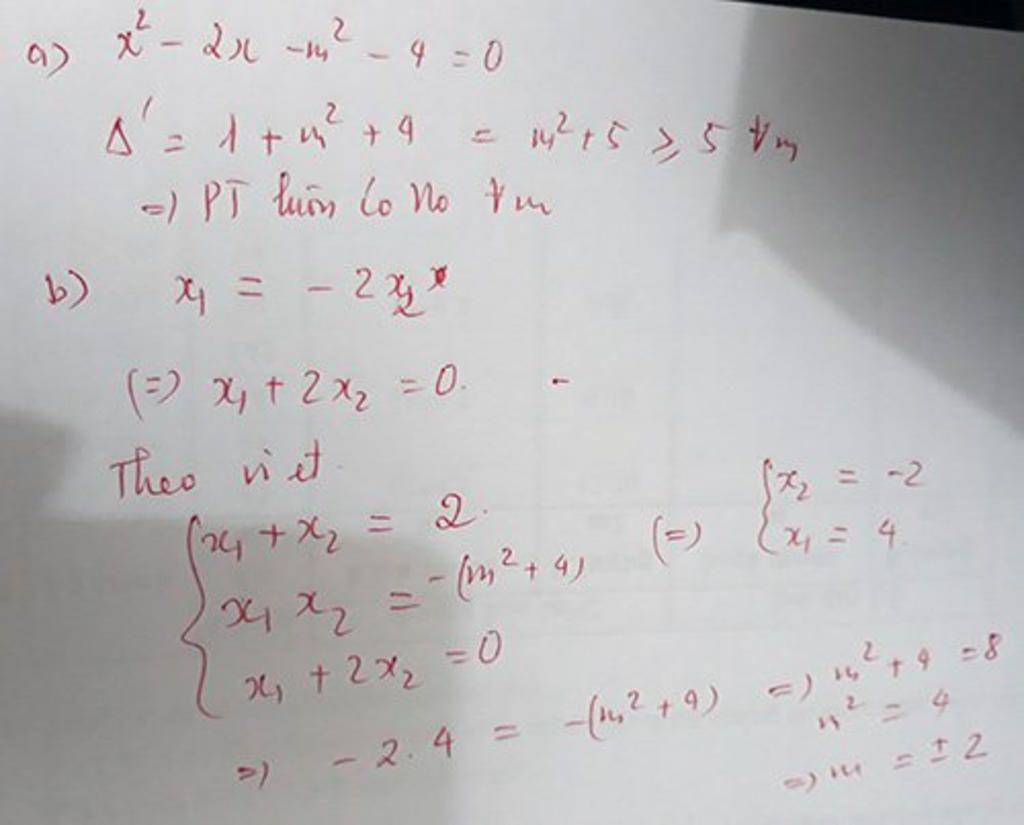 a) x² - 2x - m² - 4 = 0
Δ' = 1 + m² + 4 = m² + 5 ⩾ 5 ∀m
=) PT luôn có no ∀m
b) x₁ = - 2x₂
(=) x₁ + 2x₂ = 0.
Theo vi et
{ x₁ + x₂ = 2.
x₁ x₂ = -(m² + 4)
x₁ + 2x₂ = 0
(=) { x₂ = -2
x₁ = 4
=) - 2. 4 = -(m² + 4) =) m² + 4 = 8
m² = 4
=) m = ± 2